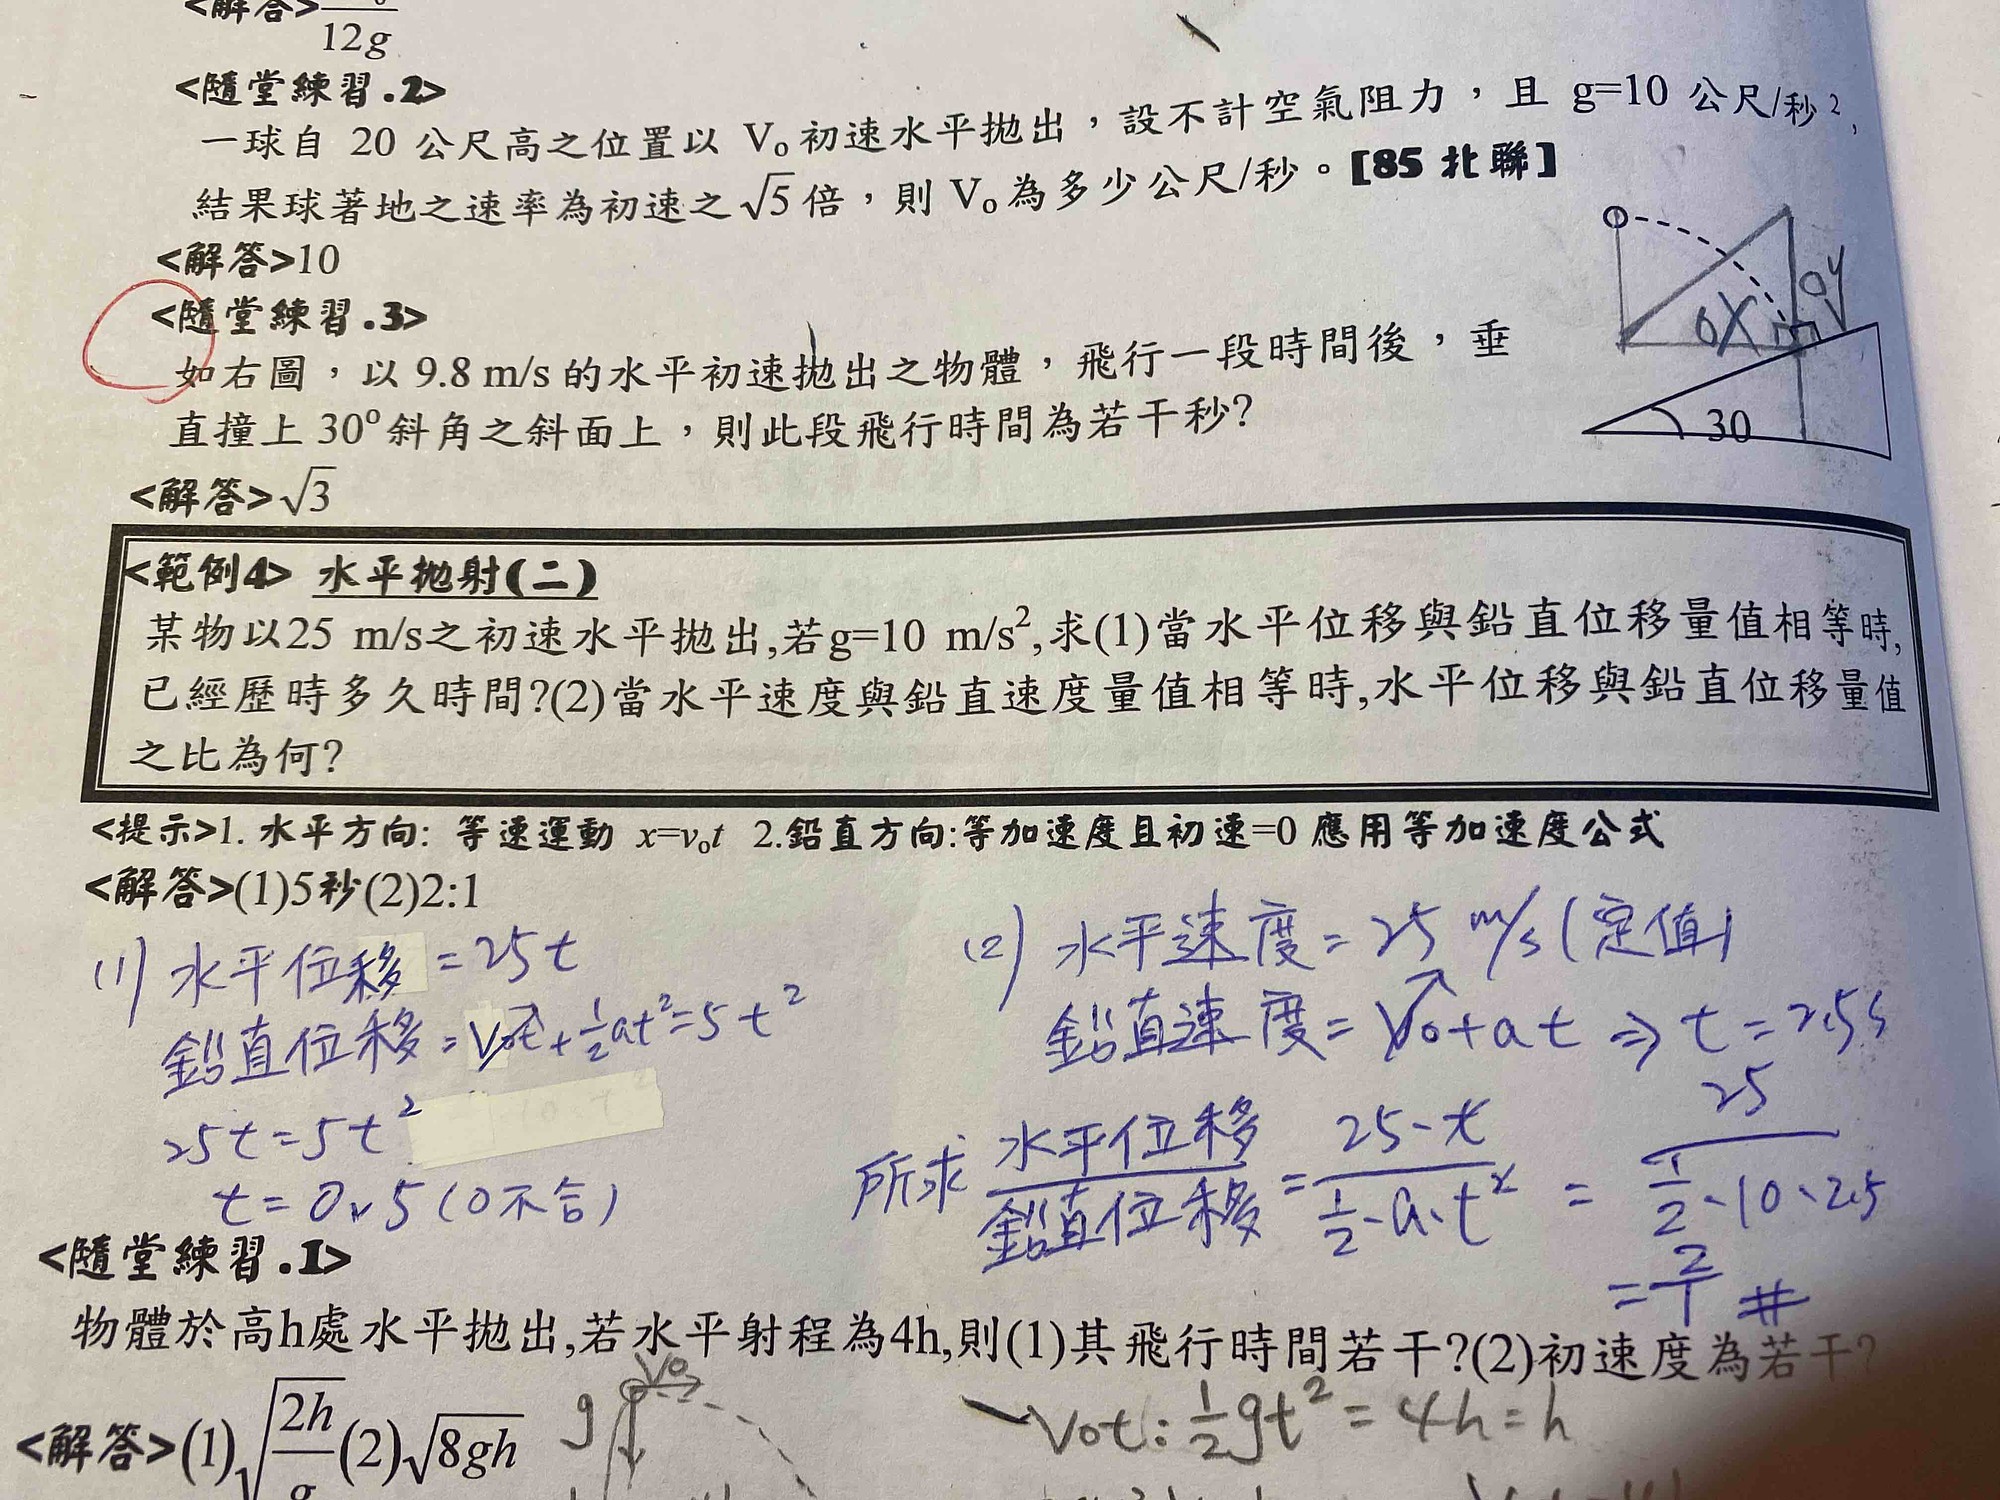 <解答>
12g
<隨堂練習.2>
一球自 20 公尺高之位置以 V₀初速水平拋出，設不計空氣阻力，且 g=10 公尺/秒²,
結果球著地之速率為初速之√5倍，則 V₀為多少公尺/秒。[85 北聯]
<解答>10
<隨堂練習.3>
如右圖，以 9.8 m/s 的水平初速拋出之物體，飛行一段時間後，垂
直撞上 30°斜角之斜面上，則此段飛行時間為若干秒?
<解答>√3
ox
oy
30
<範例4> 水平拋射(二)
某物以25 m/s之初速水平拋出,若g=10 m/s²,求(1)當水平位移與鉛直位移量值相等時,
已經歷時多久時間?(2)當水平速度與鉛直速度量值相等時,水平位移與鉛直位移量值
之比為何?
<提示>1. 水平方向: 等速運動 x=v₀t 2.鉛直方向:等加速度且初速=0 應用等加速度公式
<解答>(1)5秒(2)2:1
(1) 水平位移 = 25t
鉛直位移 = V₀t + ½at² = 5t²
25t = 5t²
t = 0, 5 (0不合)
(2) 水平速度 = 25 m/s (定值)
鉛直速度 = V₀ + at ⇒ t = 2.5s
所求 水平位移/鉛直位移 = 25·t/½·a·t² = 25/½·10·2.5
= 2/1 #
<隨堂練習.1>
物體於高h處水平拋出,若水平射程為4h,則(1)其飛行時間若干?(2)初速度為若干?
<解答>(1)√(2h/g)(2)√8gh
V₀
g
V₀t : ½gt² = 4h = h